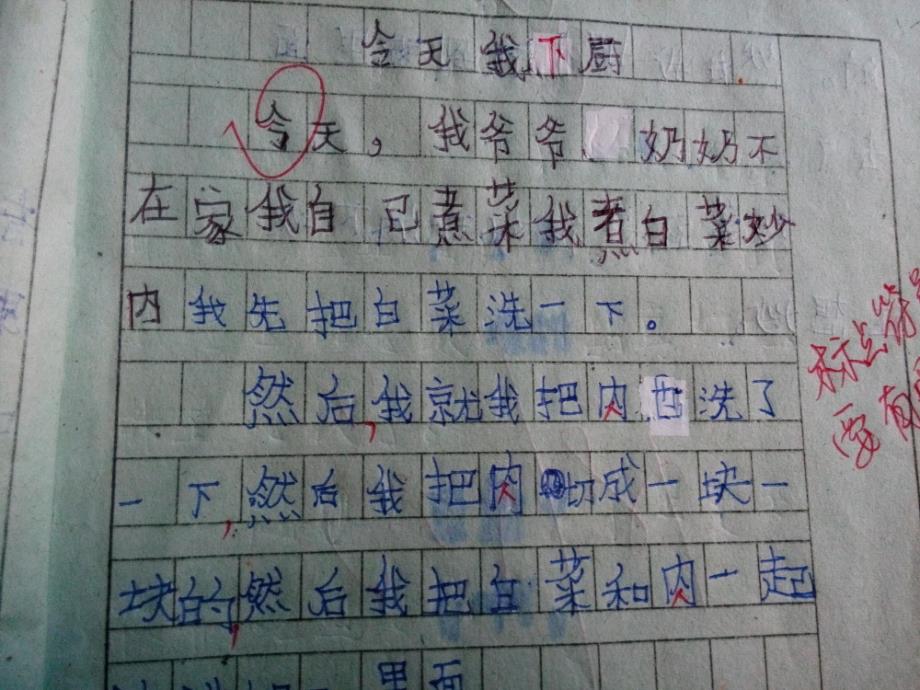 今天我下厨
今天，我爷爷奶奶不
在家我自己煮菜我煮白菜妙
内我先把白菜洗一下。
然后，我就我把肉西洗了
一下，然后我把肉切成一块一
块的，然后我把白菜和肉一起
里面
标点符号
要有